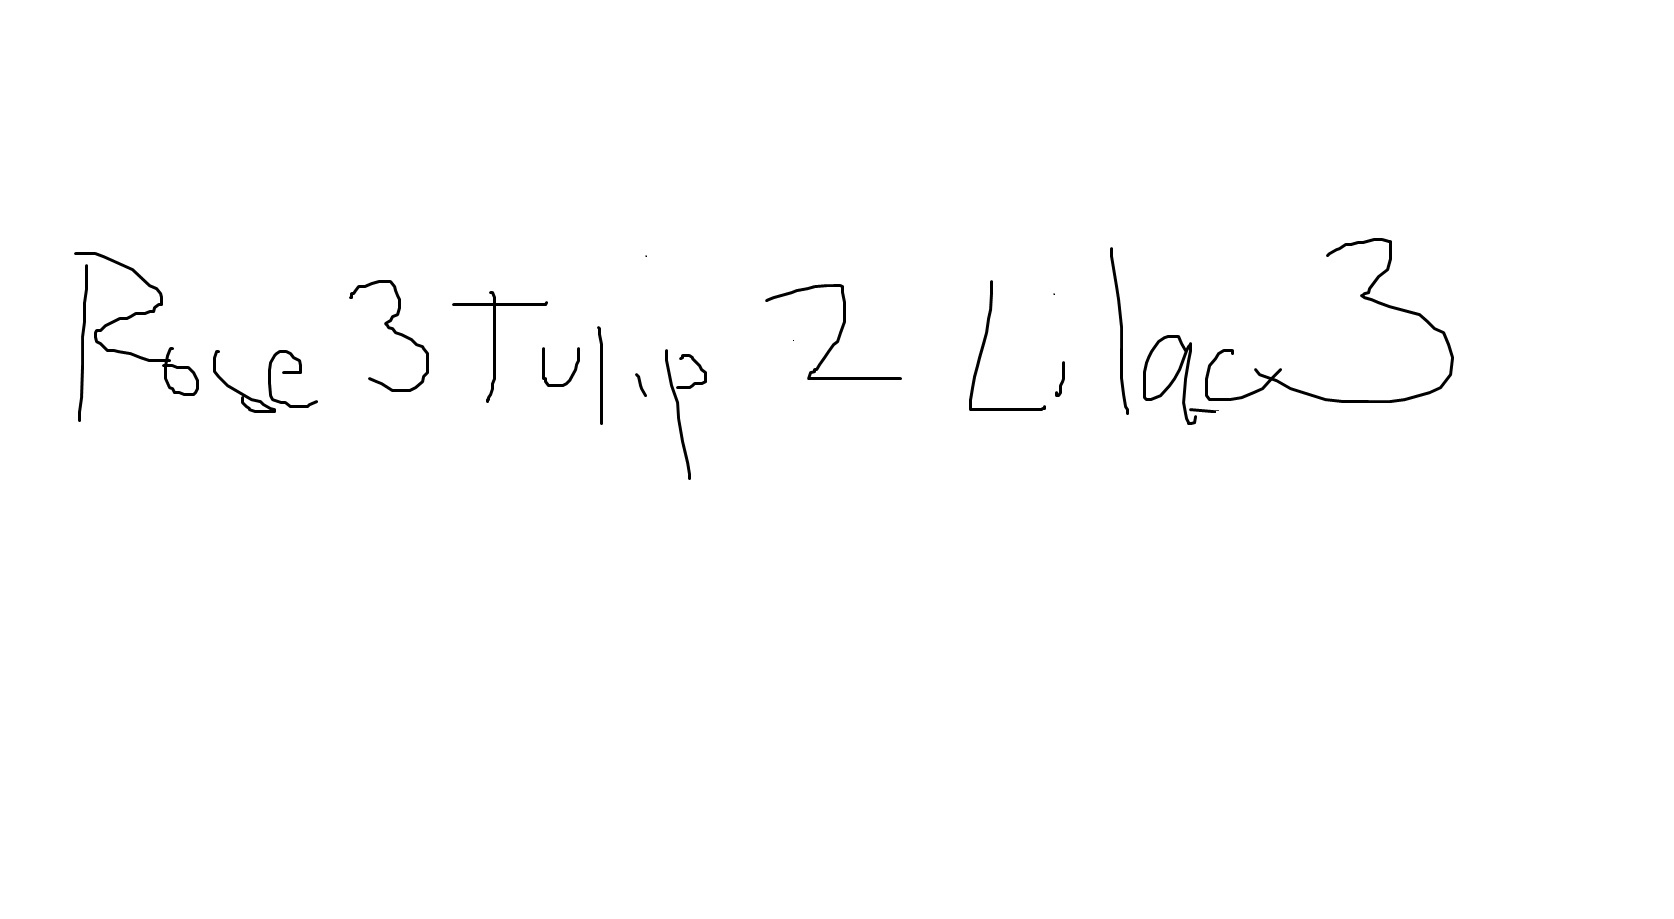 Rose 3 Tulip 2 Lilac 3